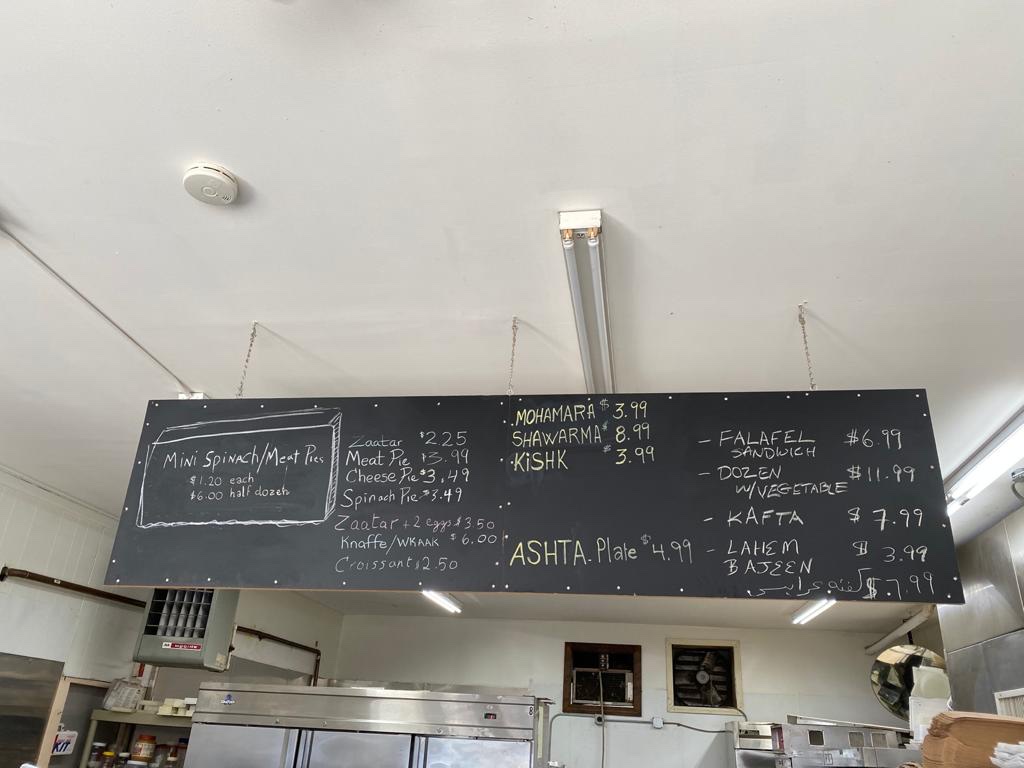 MINI SPINACH/MEAT PIES
$1.20 each
$6.00 half dozen
Zaatar $2.25
Meat Pie $3.99
Cheese Pie $3.49
Spinach Pie $3.49
Zaatar + 2 eggs $3.50
Knaffe/WKAAK $6.00
Croissant $2.50
MOHAMARA $3.99
SHAWARMA $8.99
KiSHK $3.99
ASHTA Plate $4.99
- FALAFEL $6.99
SANDWICH
- DOZEN $11.99
W/VEGETABLE
- KAFTA $7.99
- LAHEM $3.99
BAJEEN
$7.99